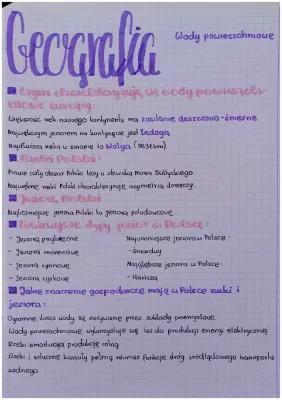 Geografia
Wody powierzchniowe
Czym charakteryzują się wody powierzch-
niowe Europy:
Większość rzek naszego kontynentu ma zasilanie deszczowo-śnieżne
Największym jeziorem na kontynencie jest Ładoga
Najdłuższą rzeką w Europie to Wołga (3531 km)
Rzeki Polski:
Prawie cały obszar Polski leży w zlewisku morza Bałtyckiego
Największe rzeki Polski charakteryzuje asymetria dorzeczy.
Jeziora Polski
Najliczniejsze jeziora Polski to jeziora polodowcowe
typy jezior w Polsce:
- Jeziora przybrzeżne
Największe jezioro w Polsce:
- Jeziora morenowe
- Śniardwy
- Jeziora rynnowe
Najgłębsze jezioro w Polsce:
- Jeziora cyrkowe
- Hańcza
Jakie znaczenie gospodarcze mają w Polsce rzeki i
jeziora:
Ogromne ilości wody są zużywane przez zakłady przemysłowe
Wody powierzchniowe wykorzystuje się też do produkcji energii elektrycznej
Rzeki umożliwiają produkcję rolną
Rzeki i sztuczne kanały pełnią również funkcje dróg śródlądowego transportu
wodnego.